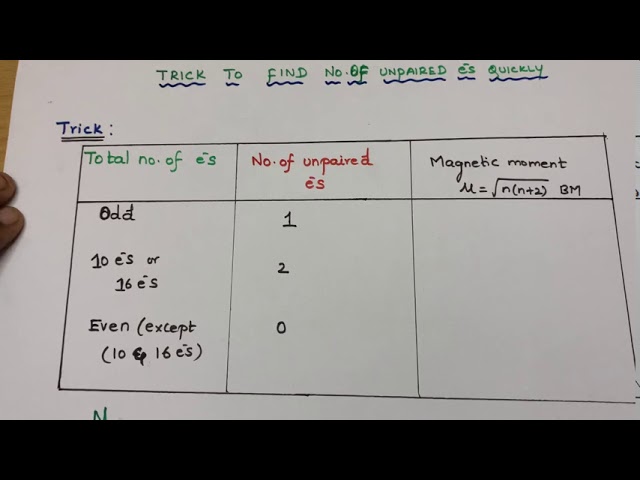 TRICK TO FIND NO. OF UNPAIRED e̅s QUICKLY
Trick :
Total no. of e̅s
No. of unpaired
e̅s
Magnetic moment
μ = √n(n+2) BM
Odd
1
10 e̅s or
16 e̅s
2
Even (except
(10 & 16 e̅s)
0